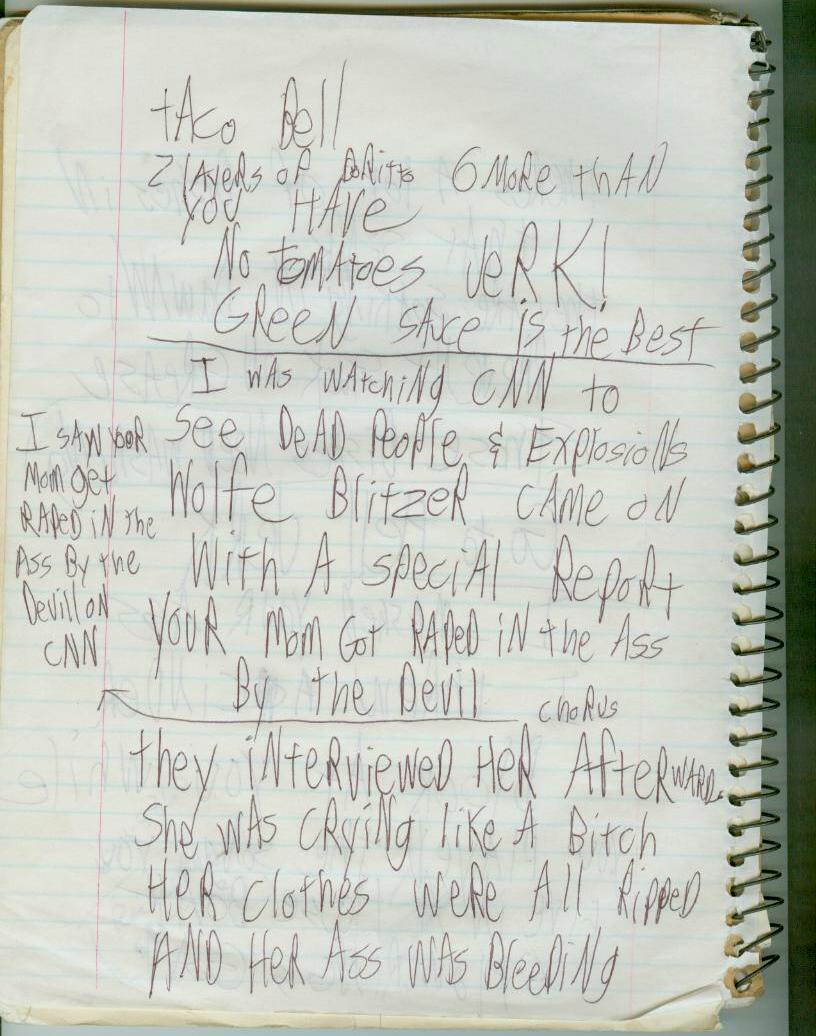 tAco Bell
2 lAyers of Boritto 6 MoRe thAN
you HAve
No tomAtoes JeRK!
GReeN sAuce is the Best
I wAs wAtchiNg CNN to
See DeAD People & ExplosioNs
Wolfe BlitzeR cAme oN
With A speciAl RepoRt
youR Mom Got RAPeD iN the Ass
By the Devil
I sAw youR
Mom get
RAPeD iN the
Ass By the
Devill oN
CNN
choRus
they iNteRvieweD HeR AfteRwARD.
She wAs cRyiNg like A Bitch
HeR clothes weRe All RippeD
AND HeR Ass wAs BleeDiNg